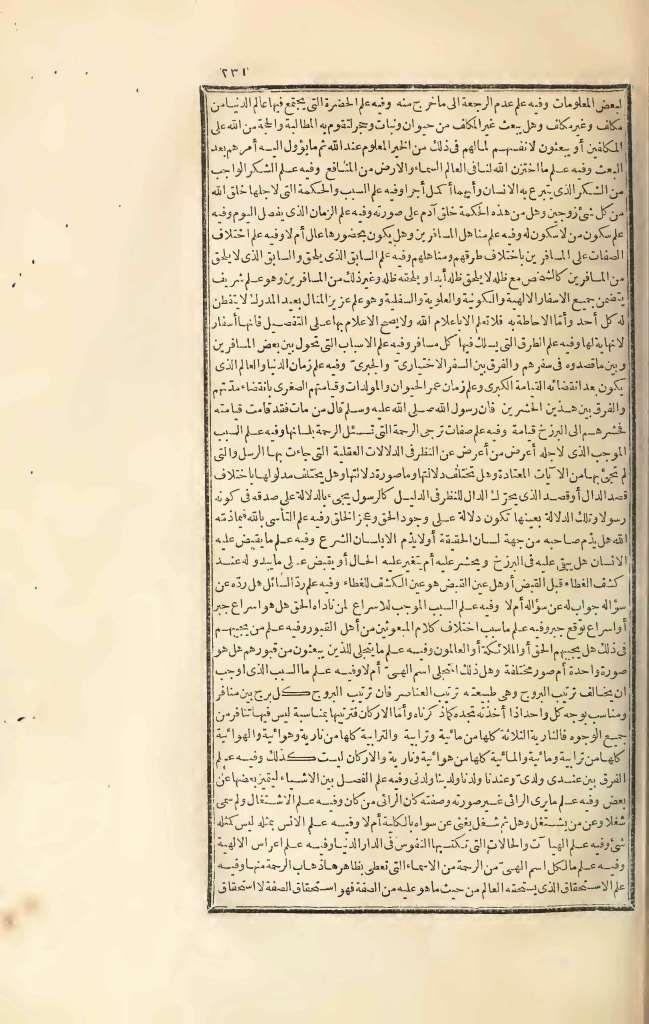 ٢٣١
لبعض المعلومات وفيه علم عدم الرجعة الى ما خرج منه وفيه علم الحضرة التى يجتمع فيها عالم الدنيا من
مكلف وغير مكلف وهل يبعث غير المكلف من حيوان ونبات وحجر لتقوم به المطالبة والحجة من الله على
المكلفين أو يبعثون لانفسهم لما لهم فى ذلك من الخير المعلوم عند الله ثم ما يؤول اليه أمرهم بعد
البعث وفيه علم ما اختزن الله لنا فى العالم السماء والارض من المنافع وفيه علم الشكر الواجب
من الشكر الذى يتبرع به الانسان وأيهما أكمل أجرا وفيه علم السبب والحكمة التى لاجلها خلق الله
من كل شئ زوجين وهل من هذه الحكمة خلق آدم على صورته وفيه علم الزمان الذى يفصل اليوم وفيه
علم سكون من لا سكون له وفيه علم مناهل المسافرين وهل يكون بحضورها عال أم لا وفيه علم اختلاف
الصفات على المسافرين باختلاف طرقهم ومناهلهم وفيه علم السابق الذى يلحق والسابق الذى لا يلحق
من المسافرين كالشخص مع ظله لا يلحق ظله أبدا ويلحقه ظله وغير ذلك من المسافرين وهو علم شريف
يتضمن جميع الاسفار الالهية والكونية والعلوية والسفلية وهو علم عزيز المنال بعيد المدرك لا يتفطن
له كل أحد وأما الاحاطة به فلا تعلم الا باعلام الله ولا يصح الاعلام بها على التفصيل فانها أسفار
لا نهاية لها وفيه علم الطرق التى يسلك فيها كل مسافر وفيه علم الاسباب التى تحول بين بعض المسافرين
وبين ما قصدوه فى سفرهم والفرق بين السفر الاختيارى والجبرى وفيه علم زمان الدنيا والعالم الذى
يكون بعد انقضائه القيامة الكبرى وعلم زمان عمر الحيوان والمولدات وقيامتهم الصغرى بانقضاء مدتهم
والفرق بين هذين الحشرين فان رسول الله صلى الله عليه وسلم قال من مات فقد قامت قيامته
فحشرهم الى البرزخ قيامة وفيه علم صفات ترجى الرحمة التى تسئل الرحمة بلسانها وفيه علم السبب
الموجب الذى لاجله أعرض من أعرض عن النظر فى الدلالات العقلية التى جاءت بها الرسل والتى
لم تجئ بها من الآيات المعتادة وهل تختلف دلالتها وما صورة دلالتها وهل يختلف مدلولها باختلاف
قصد الدال أو قصد الذى يحرّك الدال للنظر فى الدليل كالرسول يجىء بالدلالة على صدقه فى كونه
رسولا وتلك الدلالة بعينها تكون دلالة على وجود الحق وعجز الخلق وفيه علم التأسى بالله فيما ذمته
الله هل يذم صاحبه من جهة لسان الحقيقة أو لا يذم الا بلسان الشرع وفيه علم ما يقبض عليه
الانسان هل يبقى عليه فى البرزخ ويحشر عليه أم يتغير عليه الحال أو يقبض على ما يبدو له عند
كشف الغطاء قبل القبض أو هل عين القبض هو عين الكشف للغطاء وفيه علم ردّ السائل هل ردّه عن
سؤاله جواب له عن سؤاله أم لا وفيه علم السبب الموجب للاسراع لمن ناداه الحق هل هو اسراع جبر
أو اسراع توقع جبر وفيه علم ما سبب اختلاف كلام المبعوثين من أهل القبور وفيه علم من يجيبهم
فى ذلك هل يجيبهم الحق أو الملائكة أو العالمون وفيه علم ما يتجلى للذين يبعثون من قبورهم هل هو
صورة واحدة أم صور مختلفة وهل ذلك المتجلى اسم الهىّ أم لا وفيه علم ما السبب الذى اوجب
ان يخالف ترتيب البروج وهى طبيعة ترتيب العناصر فان ترتيب البروج كل برج بين منافر
ومناسب بوجه كل واحد اذا أخذته تجده كما ذكرناه وأما الاركان فترتيبها بمناسبة ليس فيها تنافر من
جميع الوجوه فالنارية الثلاثة كلها من مائية وترابية والترابية كلها من نارية وهوائية والهوائية
كلها من ترابية ومائية والمائية كلها من هوائية ونارية والاركان ليست كذلك وفيه علم
الفرق بين عندى ولدى وعندنا ولدنا ولدينا ولدنى وفيه علم الفصل بين الاشياء ليتميز بعضها عن
بعض وفيه علم ما يرى الرائى غير صورته وصفته كان الرائى من كان وفيه علم الاشتغال ولم سمى
شغلا وعن من يشتغل وهل ثم شغل يغنى عن سواه بالكلية أم لا وفيه علم الانس بمثله ليس كمثله
شئ وفيه علم الهيآت والحالات التى تكتسبها النفوس فى الدار الدنيا وفيه علم اعراس الالهية
وفيه علم ما لكل اسم الهىّ من الرحمة من الاسماء التى تعطى بظاهرها ذهاب الرحمة منها وفيه
علم الاستحقاق الذى يستحقه العالم من حيث ما هو عليه من الصفة فهو استحقاق الصفة لا استحقاق